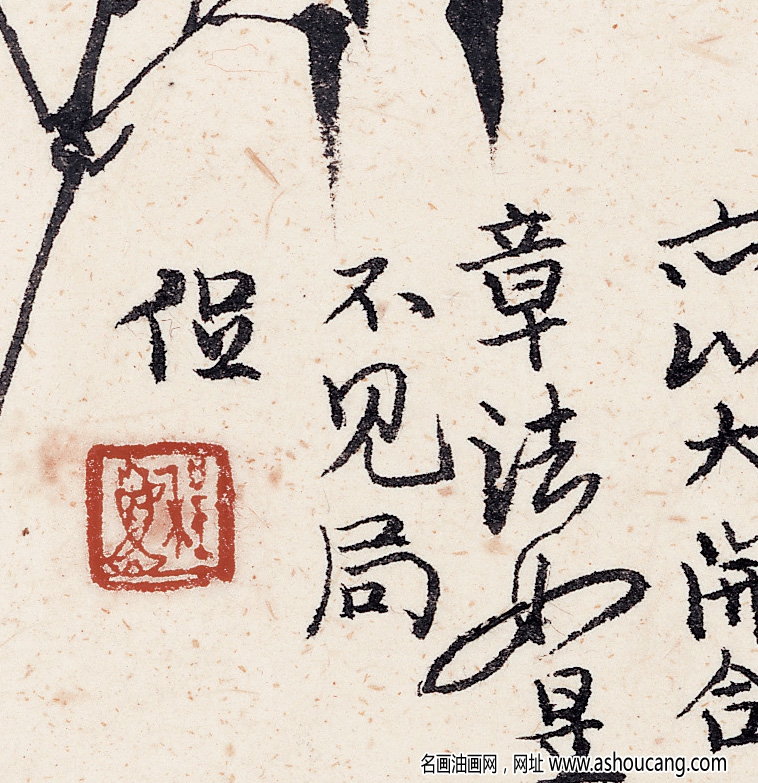 亦以大開合
章法如是
不见局
名画油画网，网址 www.ashoucang.com